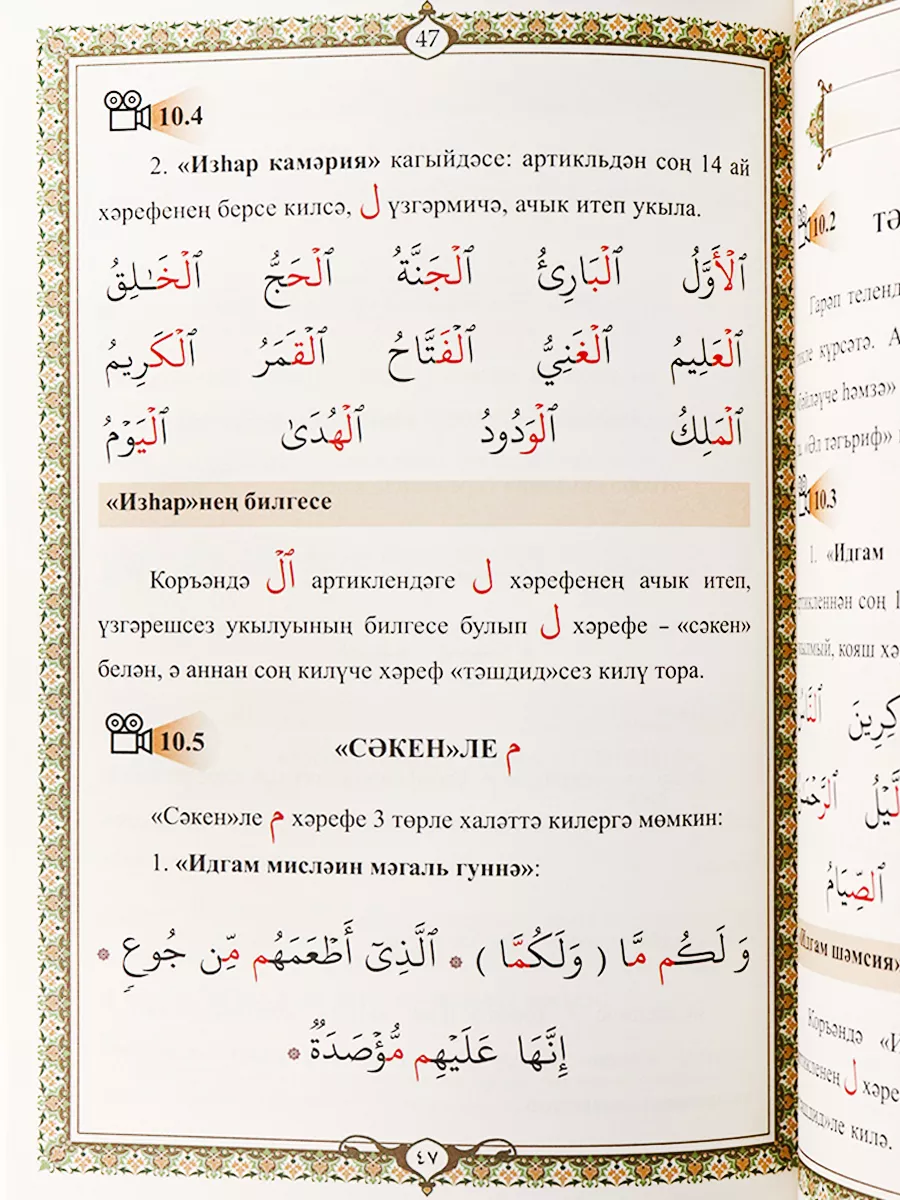 47
10.4
2. «Изһар камәрия» кагыйдәсе: артикльдән соң 14 ай
хәрефенең берсе килсә, ل үзгәрмичә, ачык итеп укыла.
ٱلْأَوَّلُ ٱلْبَارِئُ ٱلْجَنَّةُ ٱلْحَجُّ ٱلْخَـٰلِقُ
ٱلْعَلِيمُ ٱلْغَنِيُّ ٱلْفَتَّاحُ ٱلْقَمَرُ ٱلْكَرِيمُ
ٱلْمَلِكُ ٱلْوَدُودُ ٱلْهُدَىٰ ٱلْيَوْمُ
«Изһар»нең билгесе
Коръәндә ٱلْ артиклендәге ل хәрефенең ачык итеп,
үзгәрешсез укылуының билгесе булып ل хәрефе – «сәкен»
белән, ә аннан соң килүче хәреф «тәшдид»сез килү тора.
10.5
«СӘКЕН»ЛЕ م
«Сәкен»ле م хәрефе 3 төрле халәттә килергә мөмкин:
1. «Идгам мисләин мәгаль гуннә»:
وَ لَكُم مَّا ( وَلَكُمَّا ) * ٱلَّذِىٓ أَطْعَمَهُم مِّن جُوعٍ *
إِنَّهَا عَلَيْهِم مُّؤْصَدَةٌ *
٤٧
10.2
ТӘ
Гарәп теленд
күрсәтә. А
һәмзә»
«Әл тәгъриф»
10.3
1. «Идгам
соң 1
кояш хә
ٱلصِّيَامُ
Идгам шәмсия»
Коръәндә «И
ل хәре
килә.